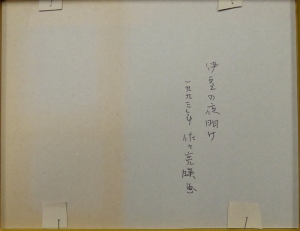 伊豆の夜明け
一九九三年 佐々